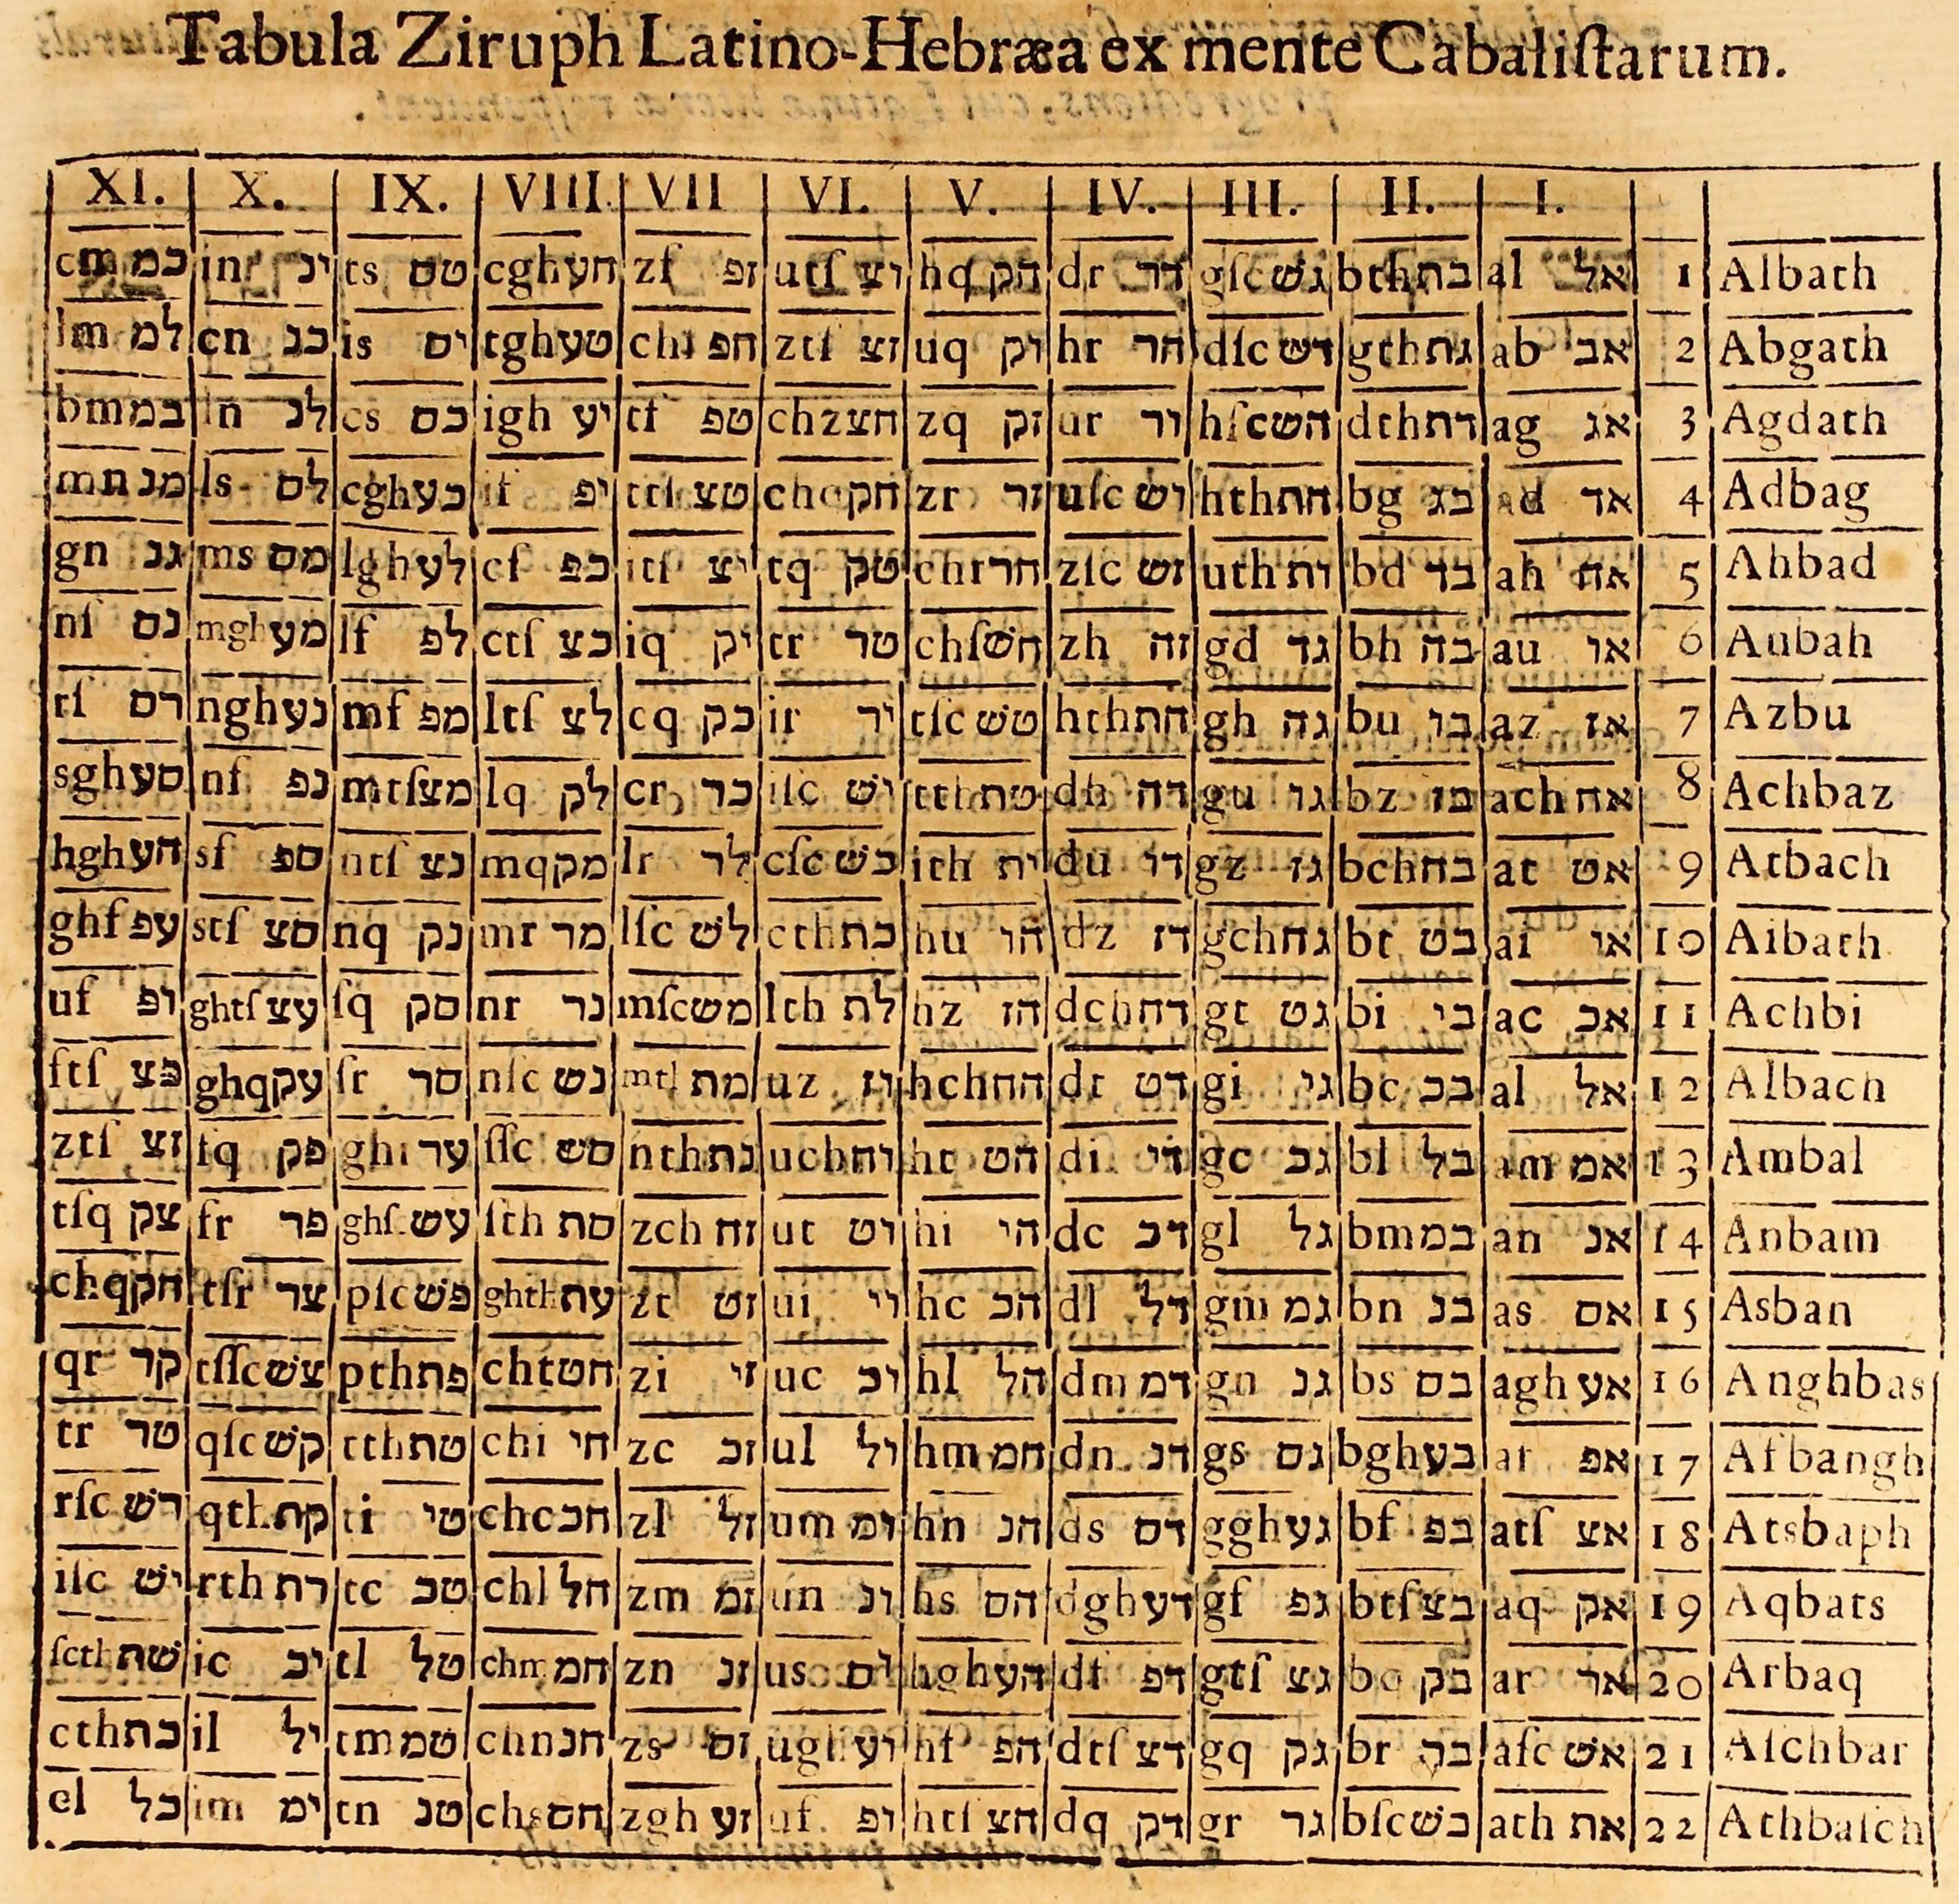 Tabula Ziruph Latino-Hebræa ex mente Cabaliſtarum.
XI. X. IX. VIII. VII VI. V. IV. III. II. I.
cm כמ in ינ ts טס cgh חע zf זפ utſ וצ hq הק dr דר gſc גש bth בת al אל 1 Albath
lm למ cn כנ is יס tgh טע ch חפ ztſ זצ uq וק hr הר dſc דש gth גת ab אב 2 Abgath
bm במ ln לנ cs כס igh יע tf טפ chz חצ zq זק ur ור hſc הש dth דת ag אג 3 Agdath
mn מנ ls לס cgh כע if יפ ttſ טצ chq חק zr זר uſc וש hth הת bg בג ad אד 4 Adbag
gn גנ ms מס lgh לע cf כפ itſ יצ tq טק chr חר zſc זש uth ות bd בד ah אה 5 Ahbad
nſ נס mgh מע lf לפ ctſ כצ iq יק tr טר chſ חש zh זה gd גד bh בה au או 6 Aubah
rſ רס ngh נע mf מפ ltſ לצ cq כק ir יר tſc טש hth חת gh גה bu בו az אז 7 Azbu
sgh סע nf נפ mtſ מצ lq לק cr כר iſc יש tth טת dh דה gu גו bz בז ach אח 8 Achbaz
hgh הע sf ספ ntſ נצ mq מק lr לר cſc כש ith ית du דו gz גז bch בח at אט 9 Atbach
ghf עפ stſ סצ nq נק mr מר lſc לש cth כת hu הו dz דז gch גח bt בט ai אי 10 Aibath
uf ופ ghtſ עצ ſq סק nr נר mſc מש lth לת hz הז dch דח gt גט bi בי ac אכ 11 Achbi
ftſ פצ ghq עק ſr סר nſc נש mt מת uz וז hch הח dt דט gi גי bc בכ al אל 12 Albach
ztſ זצ fq פק ghr ער ſſc סש nth נת uch וח ht הט di די gc גכ bl בל am אמ 13 Ambal
tſq צק fr פר ghſ עש ſth סת zch זח ut וט hi הי dc דכ gl גל bm במ an אנ 14 Anbam
chq חק tſr צר pſc פש ghth עת zt זט ui וי hc הכ dl דל gm גמ bn בנ as אס 15 Asban
qr קר tſſc צש pth פת cht חט zi זי uc וכ hl הל dm דמ gn גנ bs בס agh אע 16 Anghbas
tr טר qſc קש tth טת chi חי zc זכ ul ול hm המ dn דנ gs גס bgh בע af אפ 17 Afbangh
rſc רש qth קת ti טי chc חכ zl זל um ומ hn הנ ds דס ggh גע bf בפ atſ אצ 18 Atsbaph
iſc יש rth רת tc טכ chl חל zm זמ un ונ hs הס dgh דע gf גפ btſ בצ aq אק 19 Aqbats
ſcth שת ic יכ tl טל chm חמ zn זנ us וס hgh הע df דפ gtſ גצ bq בק ar אר 20 Arbaq
cth כת il יל tm טמ chn חנ zs זס ugh וע hf הפ dtſ דצ gq גק br בר aſc אש 21 Aſchbar
cl כל im ימ tn טנ chs חס zgh זע uf ופ htſ הצ dq דק gr גר bſc בש ath את 22 Athbaſch